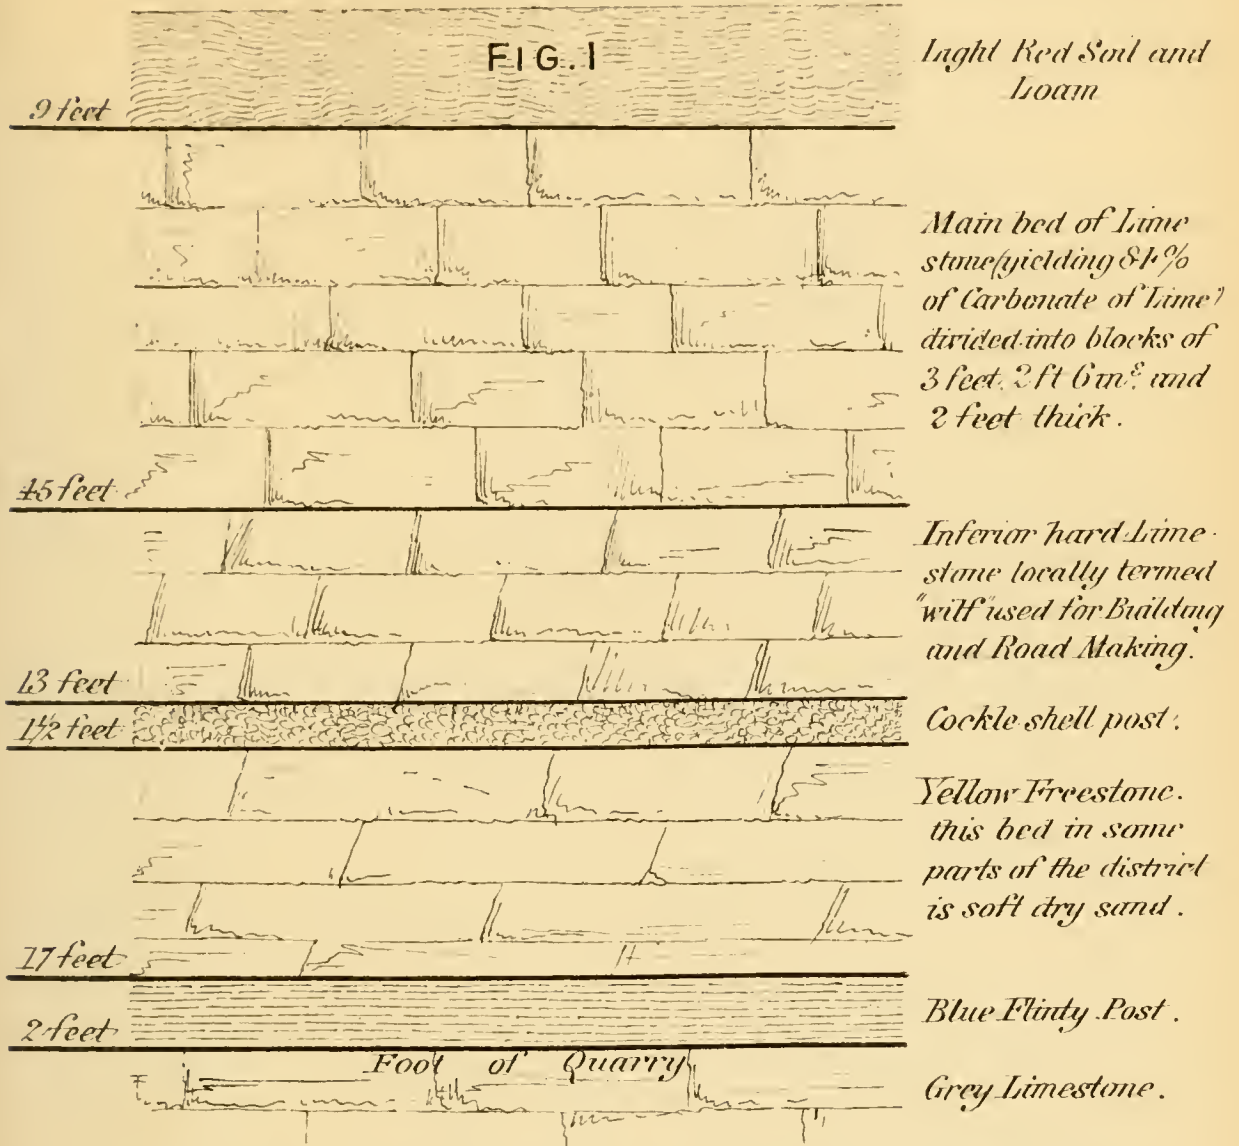 FIG. 1
Light Red Soil and
Loam
9 feet
Main bed of Lime
stone (yielding 84%
of Carbonate of Lime)
divided into blocks of
3 feet. 2 ft 6 inˢ. and
2 feet thick.
45 feet
Inferior hard Lime-
stone locally termed
"wilf" used for Building
and Road Making.
13 feet
1½ feet
Cockle shell post.
Yellow Freestone.
this bed in some
parts of the district
is soft dry sand.
17 feet
Blue Flinty Post.
2 feet
Foot of Quarry
Grey Limestone.